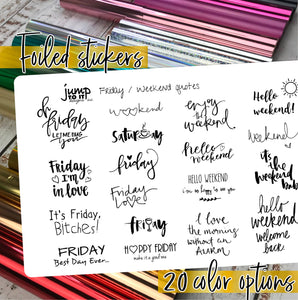 Foiled stickers
jump
to it!
Friday / Weekend quotes
oh
friday
LET ME HUG
YOU
weekend
enjoy
the
weekend
Hello
weekend!
Saturday
weekend
Friday
I'm
in love
friday
hello
weekend
it's
the
weekend
Friday
Love
HELLO WEEKEND
It's Friday,
Bitches!
friday
I love
the
mornings
without an
alarm
hello
weekend
welcome
back
FRIDAY
Best Day Ever
HAPPY FRIDAY
make it a good one
20 color options